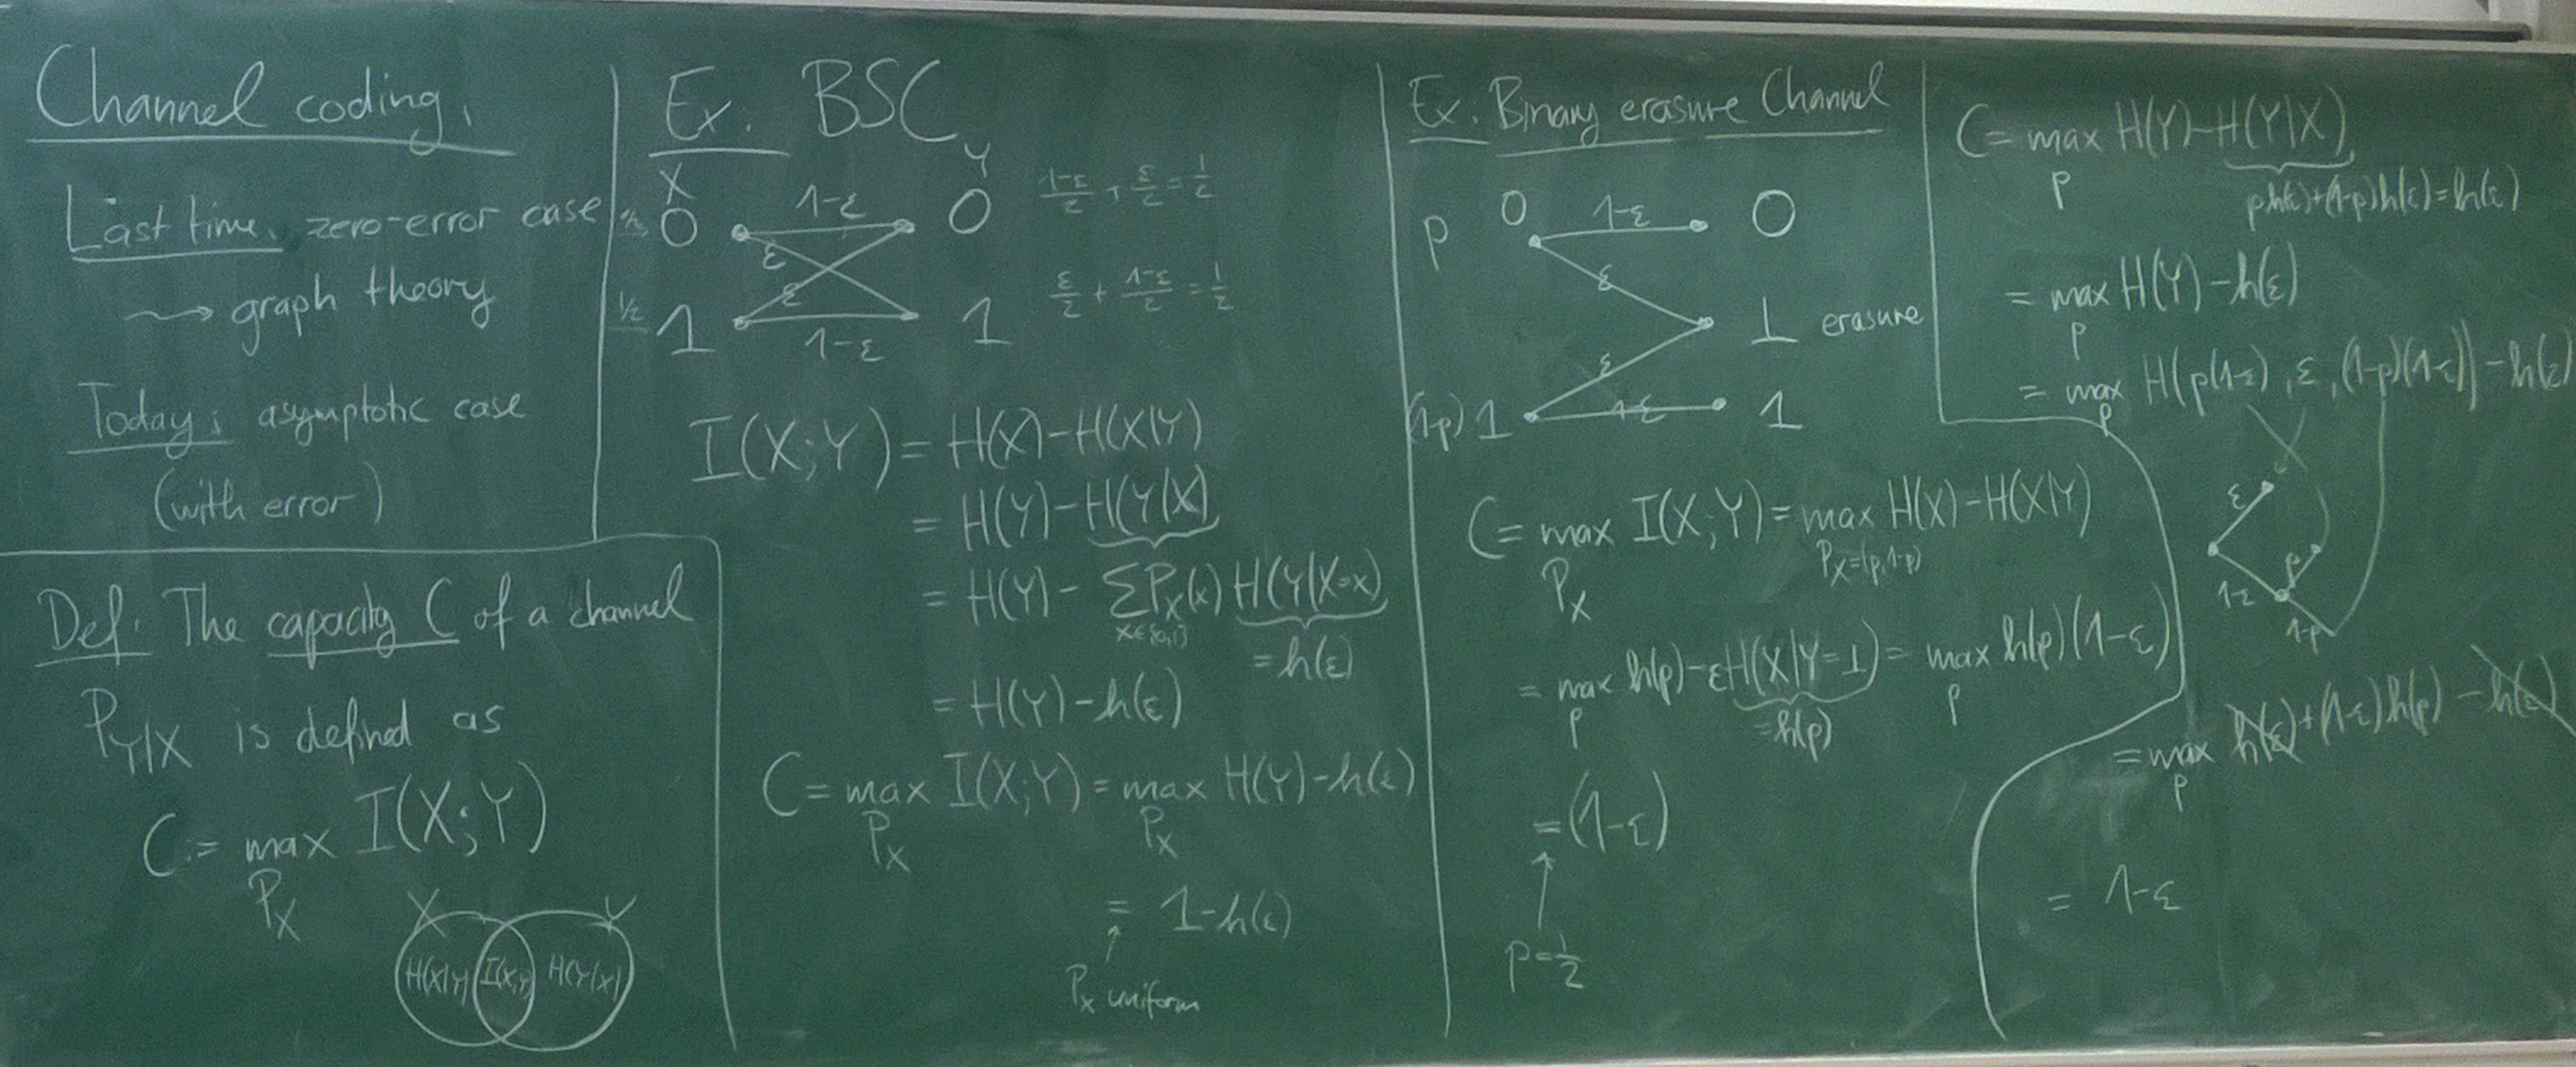 Channel coding.
Last time. zero-error case
⟿ graph theory
Today: asymptotic case
(with error)
Def: The capacity C of a channel
P_{Y|X} is defined as
C := max_{P_X} I(X;Y)
X Y
H(X|Y) I(X;Y) H(Y|X)
Ex: BSC
X Y
1/2 0 1-ε 0 (1-ε)/2 + ε/2 = 1/2
ε
ε
1/2 1 1-ε 1 ε/2 + (1-ε)/2 = 1/2
I(X;Y) = H(X)-H(X|Y)
= H(Y)-H(Y|X)
= H(Y) - Σ_{x∈{0,1}} P_X(x) H(Y|X=x)
= h(ε)
= H(Y)-h(ε)
C = max_{P_X} I(X;Y) = max_{P_X} H(Y)-h(ε)
= 1-h(ε)
↑
P_X uniform
Ex: Binary erasure Channel
p 0 1-ε 0
ε
⊥ erasure
ε
(1-p) 1 1-ε 1
C = max_{P_X} I(X;Y) = max_{P_X=(p,1-p)} H(X)-H(X|Y)
= max_p h(p)-εH(X|Y=⊥) = max_p h(p)(1-ε)
=h(p)
= (1-ε)
↑
p=1/2
C = max_p H(Y)-H(Y|X)
p·h(ε)+(1-p)h(ε)=h(ε)
= max_p H(Y)-h(ε)
= max_p H(p(1-ε), ε, (1-p)(1-ε)) - h(ε)
ε
p
1-ε
1-p
= max_p h(ε)+(1-ε)h(p) - h(ε)
= 1-ε